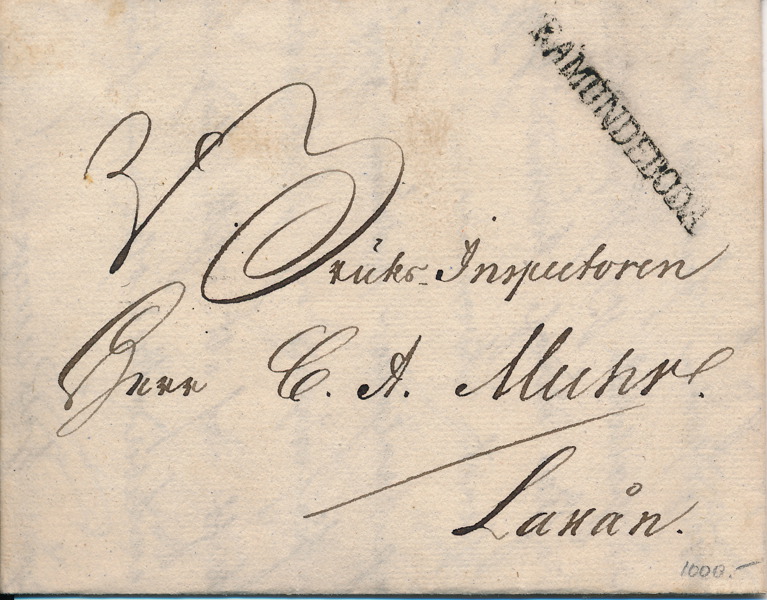 RAMUNDEBODA
Bruks-Inspectoren
Herr C. A. Muhr.
Laxån.
1000.-